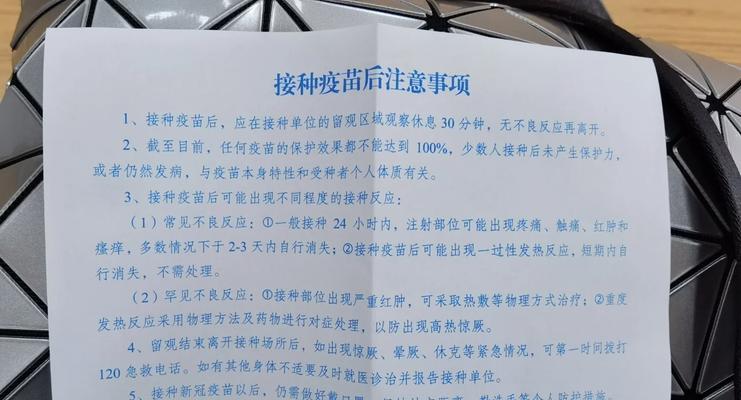 接种疫苗后注意事项
1、接种疫苗后，应在接种单位的留观区域观察休息 30 分钟，无不良反应再离开。
2、截至目前，任何疫苗的保护效果都不能达到 100%，少数人接种后未产生保护力，
或者仍然发病，与疫苗本身特性和受种者个人体质有关。
3、接种疫苗后可能出现不同程度的接种反应：
（1）常见不良反应：①一般接种 24 小时内，注射部位可能出现疼痛、触痛、红肿和
瘙痒，多数情况下于 2-3 天内自行消失；②接种疫苗后可能出现一过性发热反应，短期内自
行消失，不需处理。
（2）罕见不良反应：①接种部位出现严重红肿，可采取热敷等物理方式治疗；②重度
发热反应采用物理方法及药物进行对症处理，以防出现高热惊厥。
4、留观结束离开接种场所后，如出现惊厥、晕厥、休克等紧急情况，可第一时间拨打
120 急救电话。如有其他身体不适要及时就医诊治并报告接种单位。
5、接种新冠疫苗以后，仍需做好戴口罩、勤洗手等个人防护措施。